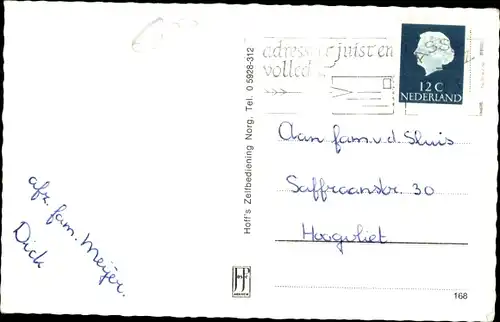 adresseer juist en
volledig
12 C
NEDERLAND
Aan fam. v.d. Sluis
Saffraanstr. 30
Hoogvliet
afz. fam. Meijer.
Dick
Hoff's Zelfbediening Norg, Tel. 0 5928-312
168